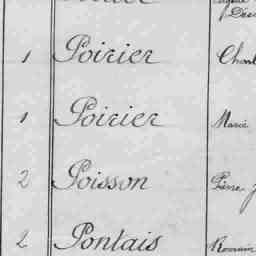 1 Poirier
1 Poirier Marie
2 Poisson Pierre
2 Pontais Romain